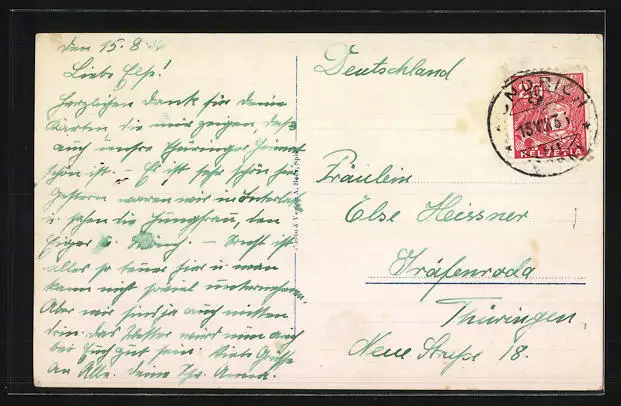 den 15.8.36
Liebe Else!
Herzlichen Dank für deine
Karten die mir zeigen, daß
auch unsre Thüringer Heimat
schön ist. – Es ist sehr schön hier
Gestern waren wir in Interlaken
u. sahen die Jungfrau, den
Eiger u. Mönch. – Sonst ist
alles so teuer hier u. man
kann nicht soviel unternehmen.
Aber wir sind ja auch mitten
drin. das Wetter wird nun auch
bei Euch gut sein. Viele Grüße
an Alle. deine
Deutschland
Fräulein
Else Heissner
Gräfenroda
Thüringen
Neue Straße 18.
20
HELVETIA